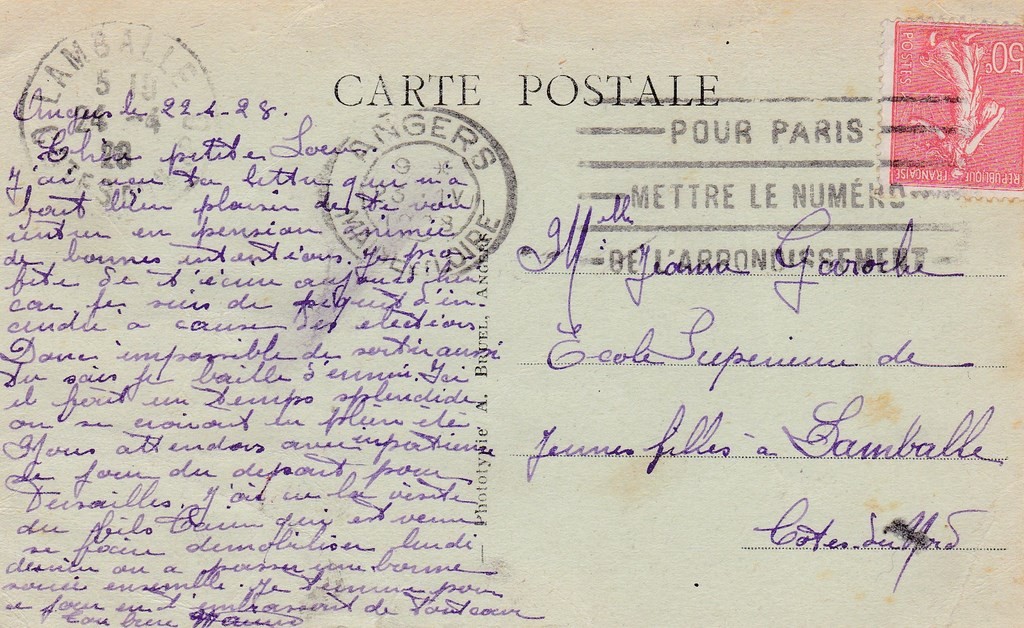 CARTE POSTALE
LAMBALLE
5 19
24 -4
28
ANGERS
MAINE ET LOIRE
POUR PARIS
METTRE LE NUMÉRO
DE L'ARRONDISSEMENT
50c
POSTES
RÉPUBLIQUE FRANÇAISE
Phototypie A. BRUEL, ANGERS
Angers le 22-4-28.
Chère petite Soeur.
J'ai reçu ta lettre qui m'a
fait bien plaisir de te voir
rentrer en pension animée
de bonnes intentions. Je pro
fite de t'écrire aujourd'hui
car je suis de piquet d'in
cendie a cause des elections
Donc impossible de sortir aussi
tu sais je baille d'ennui. Ici
il fait un temps splendide
on se croirait en plein été
Nous attendons avec impatience
le jour du depart pour
Versailles. J'ai eu la visite
du fils qui est venu
se faire demobiliser lundi
dernier on a passer une bonne
soirée ensemble. Je termine pour
ce jour en t'embrassant de tout coeur
Ton frère
Melle Jeanne Garoche
École Superieure de
jeunes filles à Lamballe
Côtes-du-Nord